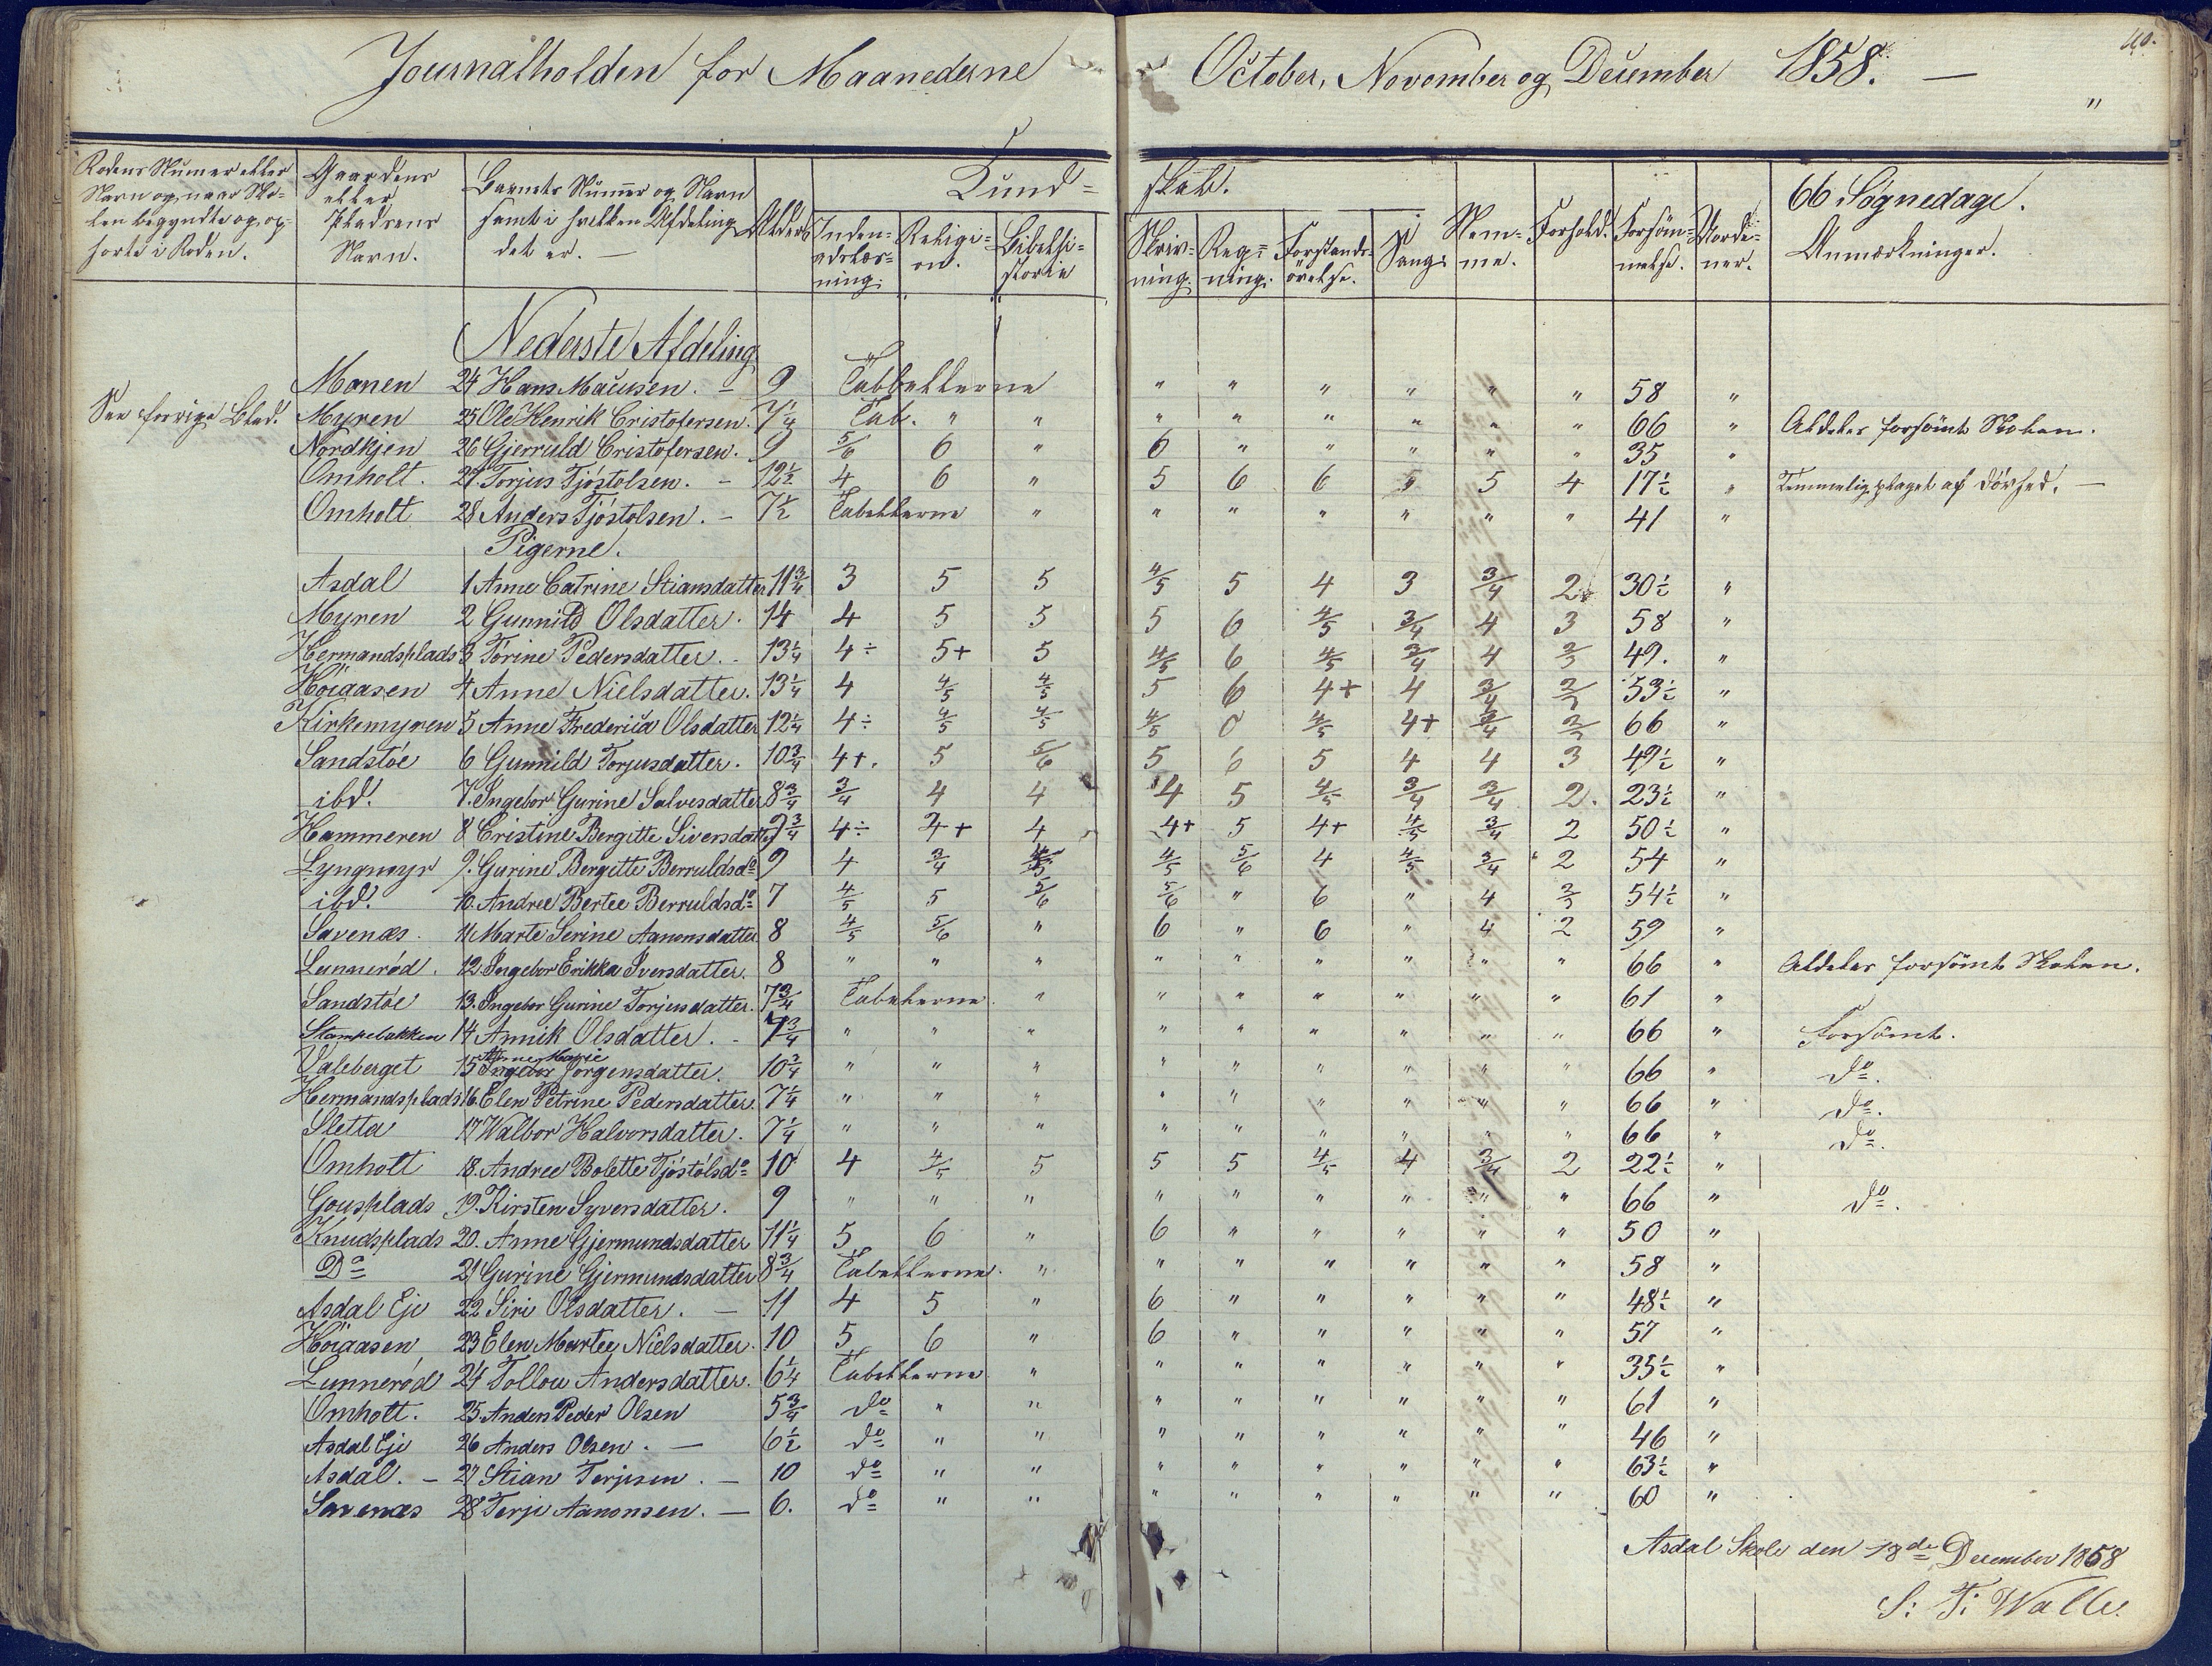 Journalholden for Maanederne October, November og December 1858. —
40.
"
Rodens Numer eller Navn og naar Sko-len begyndte og op-hørte i Roden.
Gaardens eller Pladsens Navn.
Barnets Nummer og Navn samt i hvilken Afdeling det er. —
Alder
Kund-skab.
Inden-adslæs-ning.
Religi-on.
Bibelhi-storie
Skriv-ning.
Reg-ning.
Forstands-øvelse.
Sang.
Nem-me.
Forhold.
Forsøm-melse.
Vurde-
66 Søgnedage.
Anmærkninger.
Nederste Afdeling
Monen 24 Hans Maurisen. – 9 Tabbellerne " " " " " " 58 "
See forrige Blad. Myren 25 Ole Henrik Cristofersen. 7 1/4 Tab. " " " " " " " " 66 " Aldeles forsømt Skolen.
Nordkjen 26 Gjerruld Cristofersen. 9 5/6 6 " 6 " " " " " 35 "
Omholt. 27. Torjus Tjøstolsen. – 12 1/2 4 6 " 5 6 6 5 5 4 17 1/2 " Temmelig plaget af Dövhed. —
Omholt 28 Anders Tjøstolsen. – 7 1/2 Tabellerne " " " " " " " 41 "
Pigerne.
Asdal 1 Anne Catrine Stiansdatter 11 3/4 3 5 5 4/5 5 4 3 3/4 2 30 1/2 "
Myren 2 Gunnild Olsdatter. 14 4 5 5 5 6 4/5 3/4 4 3 58 "
Hermandsplads 3 Torine Pedersdatter. - 13 1/4 4÷ 5+ 5 4/5 6 4/5 3/4 4 2/3 49. "
Höiaasen 4 Anne Nielsdatter. 13 1/4 4 4/5 4/5 5 6 4+ 4 3/4 2/3 53 1/2 "
Kirkemyren 5 Anne Frederica Olsdatter 12 1/4 4÷ 4/5 4/5 4/5 0 4/5 4+ 3/4 2/3 66 "
Sandstöe 6 Gunnild Torjusdatter. 10 3/4 4+. 5 5/6 5 6 5 4 4 3 49 1/2 "
ibd. 7. Ingebor Gurine Salvesdatter 8 3/4 3/4 4 4 4 5 4/5 3/4 3/4 2. 23 1/2 "
Hammeren 8 Cristine Bergitte Siversdatter 9 3/4 4÷ 4+ 4 4+ 5 4+ 4/5 3/4 2 50 1/2 "
Lyngmyr 9. Gurine Bergitte Berruldsdo 9 4 3/4 4/5 4/5 5/6 4 4/5 3/4 2 54 "
ibd. 10. Andree Bertee Berruldsdo 7 4/5 5 5/6 5/6 " 6 " 4 2/3 54 1/2 "
Savenæs. 11 Marte Serine Aanonsdatter 8 4/5 5/6 " 6 " 6 " 4 2 59 "
Lunnerød. 12. Ingebor Erikka Iversdatter. 8 " " " " " " " " " 66 " Aldeles forsømt Skolen.
Sandstöe 13. Ingebor Gurine Torjusdatter. 7 3/4 Tabellerne. " " " " " " " 61 "
Stampebakken 14 Annik Olsdatter. - 7 3/4 " " " " " " " " " 66 " Forsømt.
Valeberget 15 Anne Marie Jorgensdatter. 10 3/4 " " " " " " " " " 66 " do.
Hermandsplads 16. Elen Petrine Pedersdatter. 7 1/4 " " " " " " " " " 66 " do.
Sletta 17 Walbor Halvorsdatter. 7 1/4 " " " " " " " " " 66 " do.
Omholt 18. Andree Bolette Tjøstolsdo 10 4 4/5 5 5 5 4/5 4 3/4 2 22 1/2 "
Gousplads 19. Kirsten Syversdatter. 9 " " " " " " " " " 66 " do.
Knudsplads 20. Anne Gjermundsdatter 11 1/4 5 6 " 6 " " " " " 50 "
Do 21 Gurine Gjermundsdatter 8 3/4 Tabellerne. " " " " " " " 58 "
Asdal Eje 22 Siri Olsdatter. – 11 4 5 " 6 " " " " " 48 1/2 "
Höiaasen 23 Elen Martee Nielsdatter. 10 5 6 " 6 " " " " " 57 "
Lunnerød 24 Tollou Andersdatter. 6 1/4 Tabellerne " " " " " " " 35 1/2 "
Omholt. 25. Anders Peder Olsen 5 3/4 do " " " " " " " " 61 "
Asdal Eje 26 Anders Olsen. — 6 1/2 do " " " " " " " " 46 "
Asdal. – 27 Stian Terjesen. – 10 do " " " " " " " " 63 1/2 "
Savenæs 28 Terje Aanonsen. — 6. do " " " " " " " " 60 "
Asdal Skole den 18de December 1858
S: T: Walle.